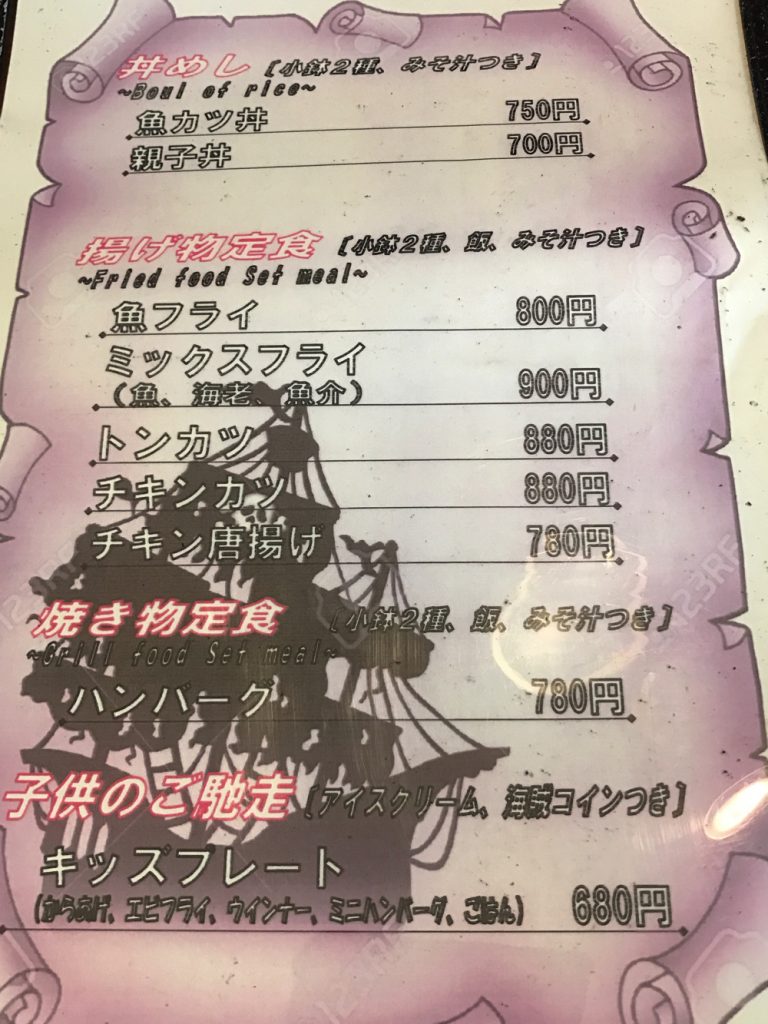 丼めし [小鉢2種、みそ汁つき]
~Boul of rice~
魚カツ丼 750円
親子丼 700円
揚げ物定食 [小鉢2種、飯、みそ汁つき]
~Fried food Set meal~
魚フライ 800円
ミックスフライ
(魚、海老、魚介) 900円
トンカツ 880円
チキンカツ 880円
チキン唐揚げ 780円
焼き物定食 [小鉢2種、飯、みそ汁つき]
~Grill food Set meal~
ハンバーグ 780円
子供のご馳走 [アイスクリーム、海賊コインつき]
キッズプレート
(からあげ、エビフライ、ウインナー、ミニハンバーグ、ごはん) 680円
123RF